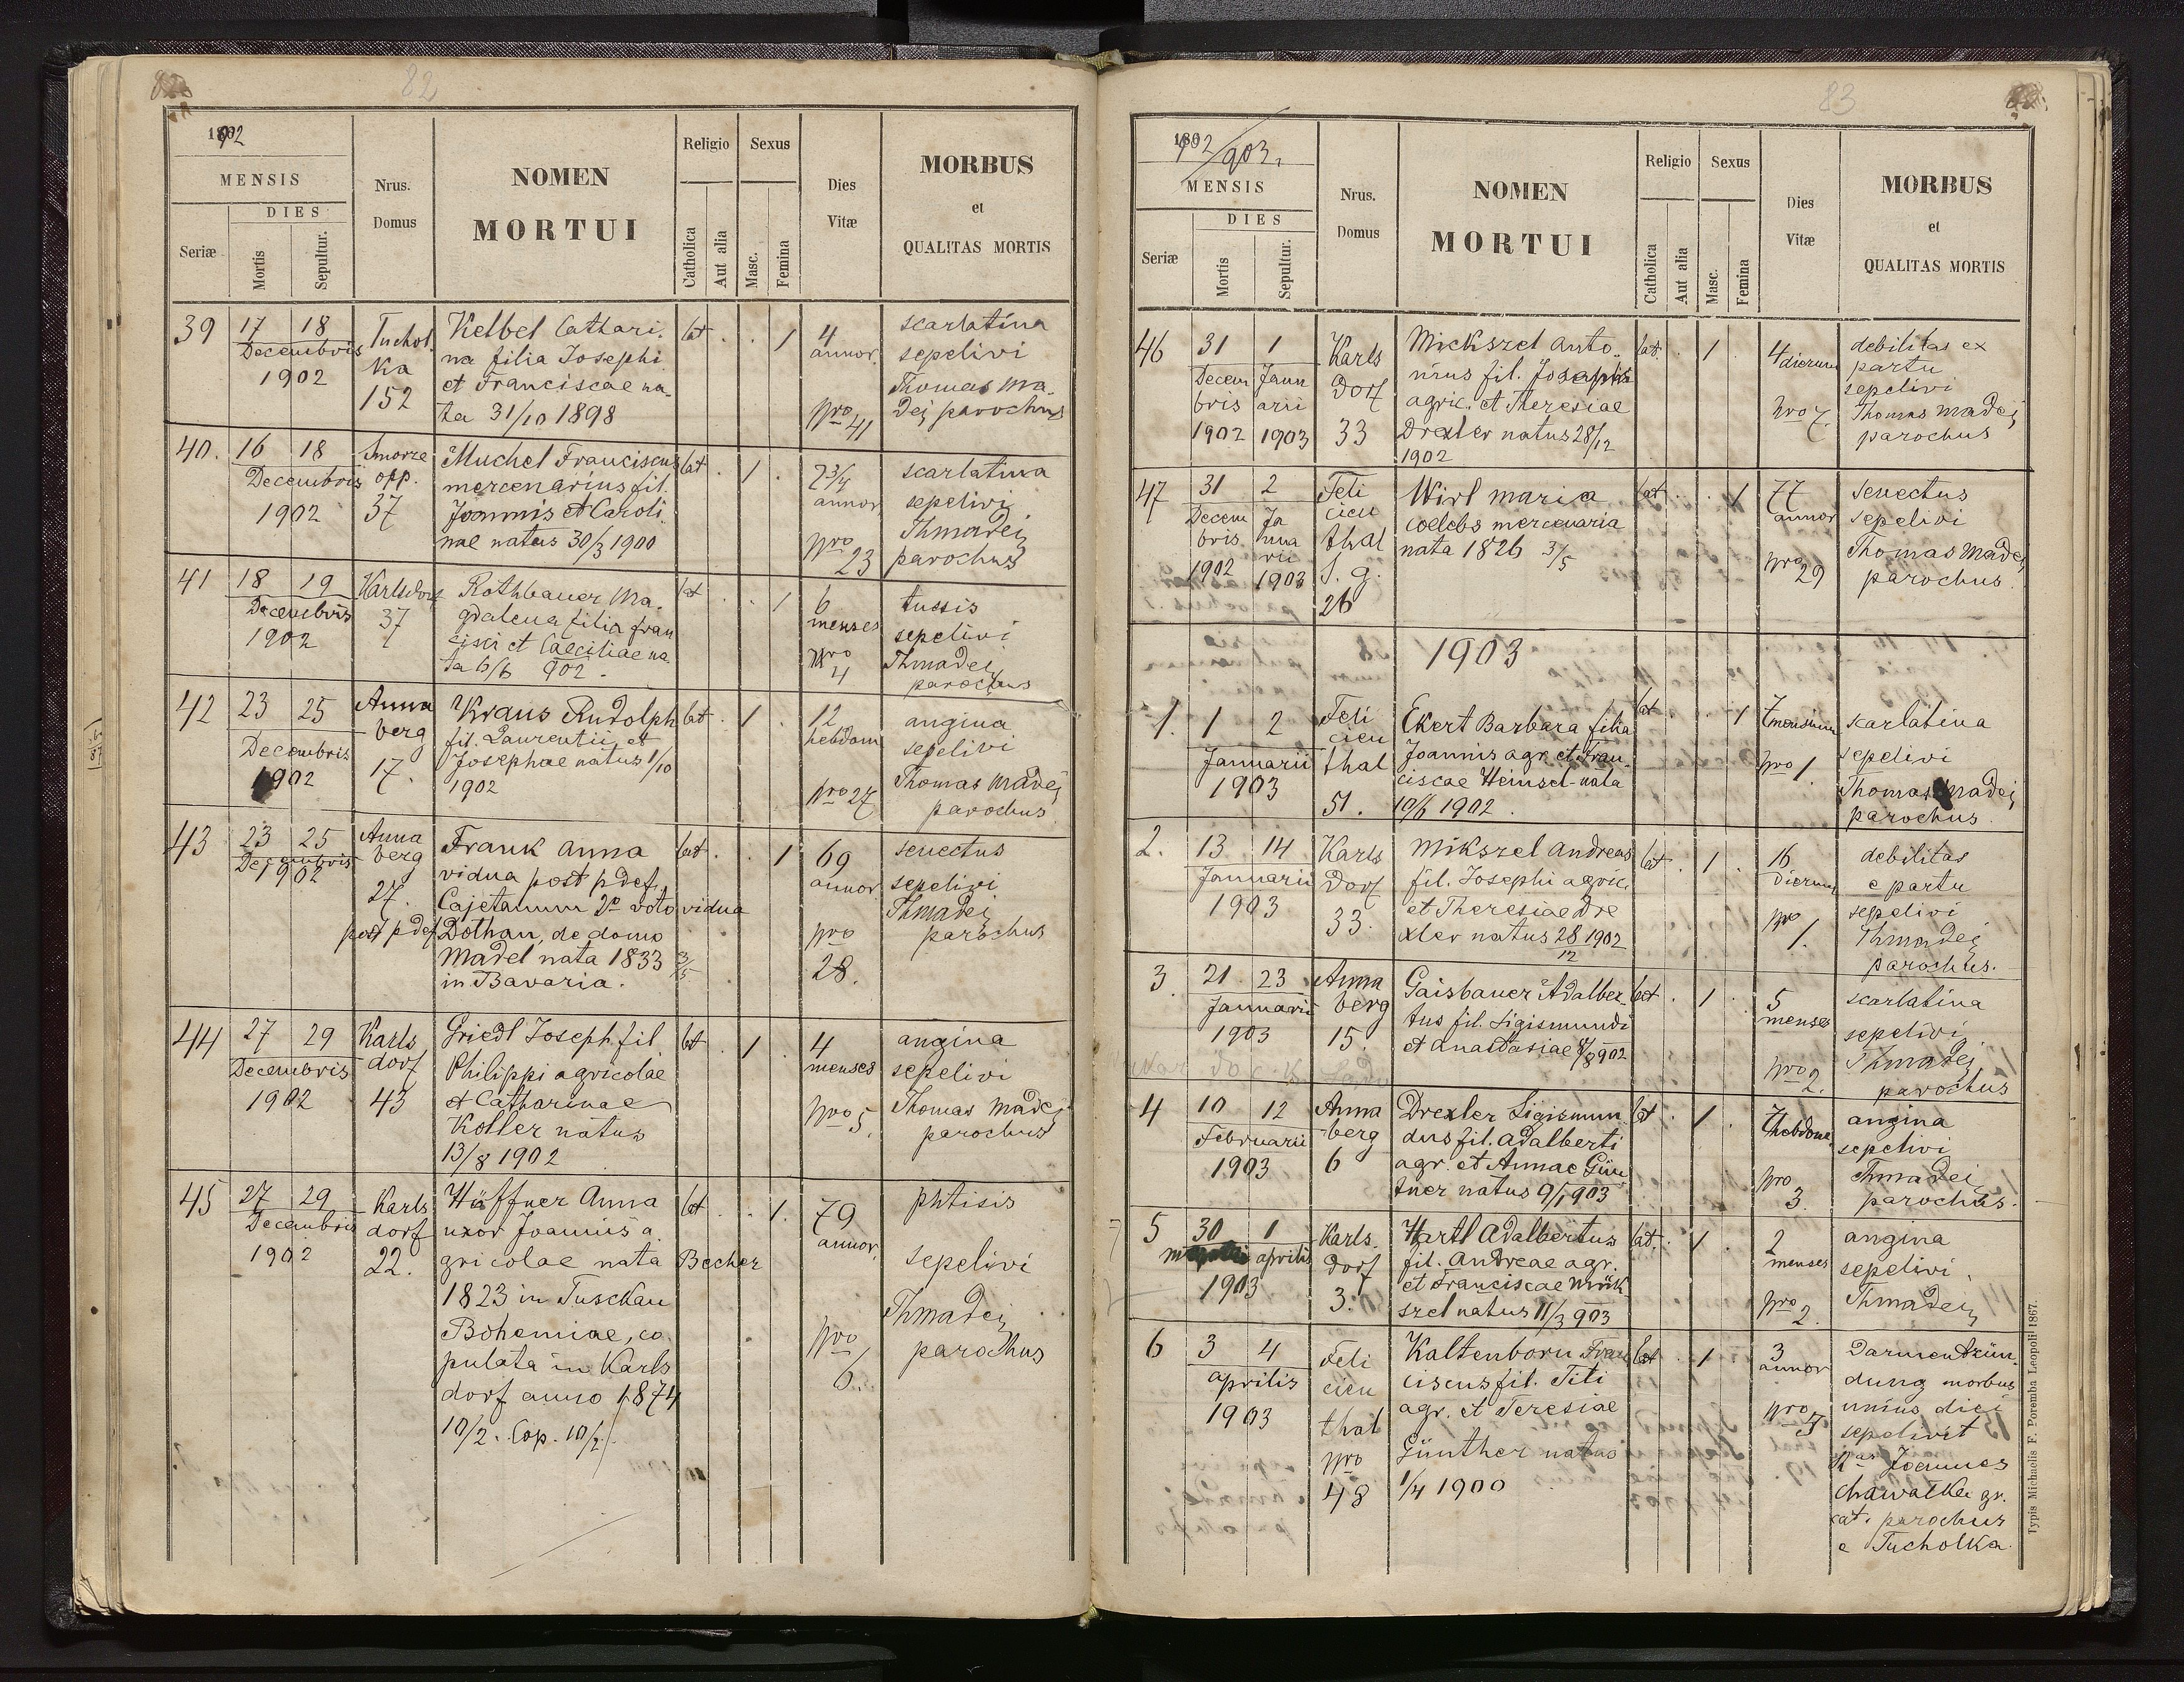 82
1902
MENSIS
DIES
Seriæ
Mortis
Sepultur.
Nrus.
Domus
NOMEN
MORTUI
Religio
Catholica
Aut alia
Sexus
Masc.
Femina
Dies
Vitæ
MORBUS
et
QUALITAS MORTIS
39
17 18
Decembris
1902
Tuchol
ka
152
Kelbel Cathari.
na filia Josephi
et Franciscae na-
ta 31/10 1898
lat
1
4
annor.
Nro 41
scarlatina
sepelivi
Thomas Ma
dej parochus
40.
16 18
Decembris
1902
Smorze
opp.
37
Muchel Franciscus
mercenarius fil.
Joannis et Caroli
nae natus 30/3 1900
lat
1
2 3/4
annor
Nro 23
scarlatina
sepelivi
Thmadej
parochus
41
18 19
Decembris
1902
Karlsdorf
37
Rothbauer Ma-
gdalena filia Fran
cisci et Caeciliae na-
ta 6/6 902.
lat
1
6
menses
Nro
4
tussis
sepelivi
Thmadej
parochus
42
23 25
Decembris
1902
Anna
berg
17.
Kraus Rudolph
fil. Laurentii et
Josephae natus 1/10
1902
lat
1
12
hebdom
Nro 27
angina
sepelivi
Thomas Madej
parochus
43
23 25
Decembris
1902
Anna
berg
27.
Frank Anna
vidua post p def.
Cajetanum 2º voto vidua
post p def Dothan, de domo
Madel nata 1833 3/5
in Bavaria.
lat
1
69
annor
Nro
28.
senectus
sepelivi
Thmadej
parochus
44
27 29
Decembris
1902
Karls
dorf
43
Griedl Joseph fil
Philippi agricolae
et Catharinae
Koller natus
13/8 1902
lat
1
4
menses
Nro 5.
angina
sepelivi
Thomas Madej
parochus
45
27 29
Decembris
1902
Karls
dorf
22.
Häffner Anna
uxor Joannis a
gricolae nata Becher
1823 in Tuschkau
Bohemiae, co
pulata in Karls
dorf anno 1874
10/2. Cop. 10/2.
lat
1.
79
annor.
Nro
6.
phtisis
sepelivi
Thmadej
parochus
83
1902/903.
MENSIS
DIES
Seriæ
Mortis
Sepultur.
Nrus.
Domus
NOMEN
MORTUI
Religio
Catholica
Aut alia
Sexus
Masc.
Femina
Dies
Vitæ
MORBUS
et
QUALITAS MORTIS
46
31 1
Decem Janu
bris arii
1902 1903
Karls
dorf
33
Mickszel Anto-
nius fil. Josephi
agric. et Theresiae
Drexler natus 28/12
1902
lat.
1
4 dierum
Nro 7.
debilitas ex
partu
sepelivi
Thomas Madej
parochus
47
31 2
Decem Ja
bris nua
rii
1902 1903
Feli
cien
thal
S. g.
26
Wirl Maria
coelebs mercenaria
nata 1826 3/5
lat
1
77
annor
Nro 29
senectus
sepelivi
Thomas Madej
parochus
1903
1.
1 2
Januarii
1903
Feli
cien
thal
51.
Ekert Barbara filia
Joannis agr. et Fran-
ciscae Heinsel nata
10/6 1902.
lat
1
7 mensium
Nro 1.
scarlatina
sepelivi
Thomas Madej
parochus.
2.
13 14
Januarii
1903
Karls
dorf
33.
Mikszel Andreas
fil. Josephi agric.
et Theresiae Dre
xler natus 28/12 1902
lat
1
16
dierum
Nro
1.
debilitas
e partu
sepelivi
Thmadej
parochus.
3
21 23
Januarii
1903
Anna
berg
15.
Gaisbauer Adalber-
tus fil. Sigismundi
et Anastasiae 8/8 902
lat
1
5
menses
Nro 2.
scarlatina
sepelivi
Thmadej
parochus
4
10 12
Februarii
1903
Anna
berg
6
Drexler Sigismun
dus fil. Adalberti
agr. et Annae Gün
tner natus 9/1 903
lat
1
7 hebdom.
Nro
3.
angina
sepelivi
Thmadej
parochus.
5
30 1
aprilis
1903
Karls
dorf
3.
Hartl Adalbertus
fil. Andreae agr.
et Franciscae Mük
szel natus 11/3 903
lat.
1
2
menses
Nro
2.
angina
sepelivi.
Thmadej
6
3 4
Aprilis
1903
Feli
cien
thal
Nro
48
Kaltenborn Fran
ciscus fil. Titi
agr. et Teresiae
Günther natus
1/4 1900
lat
1
3
annor
Nro
3
Darmentzün-
dung morbus
unius diei
sepelivit
Joannes
Chawalka gr.
cat. parochus
e Tucholka.
Typis Michaelis F. Poremba Leopoli 1867.